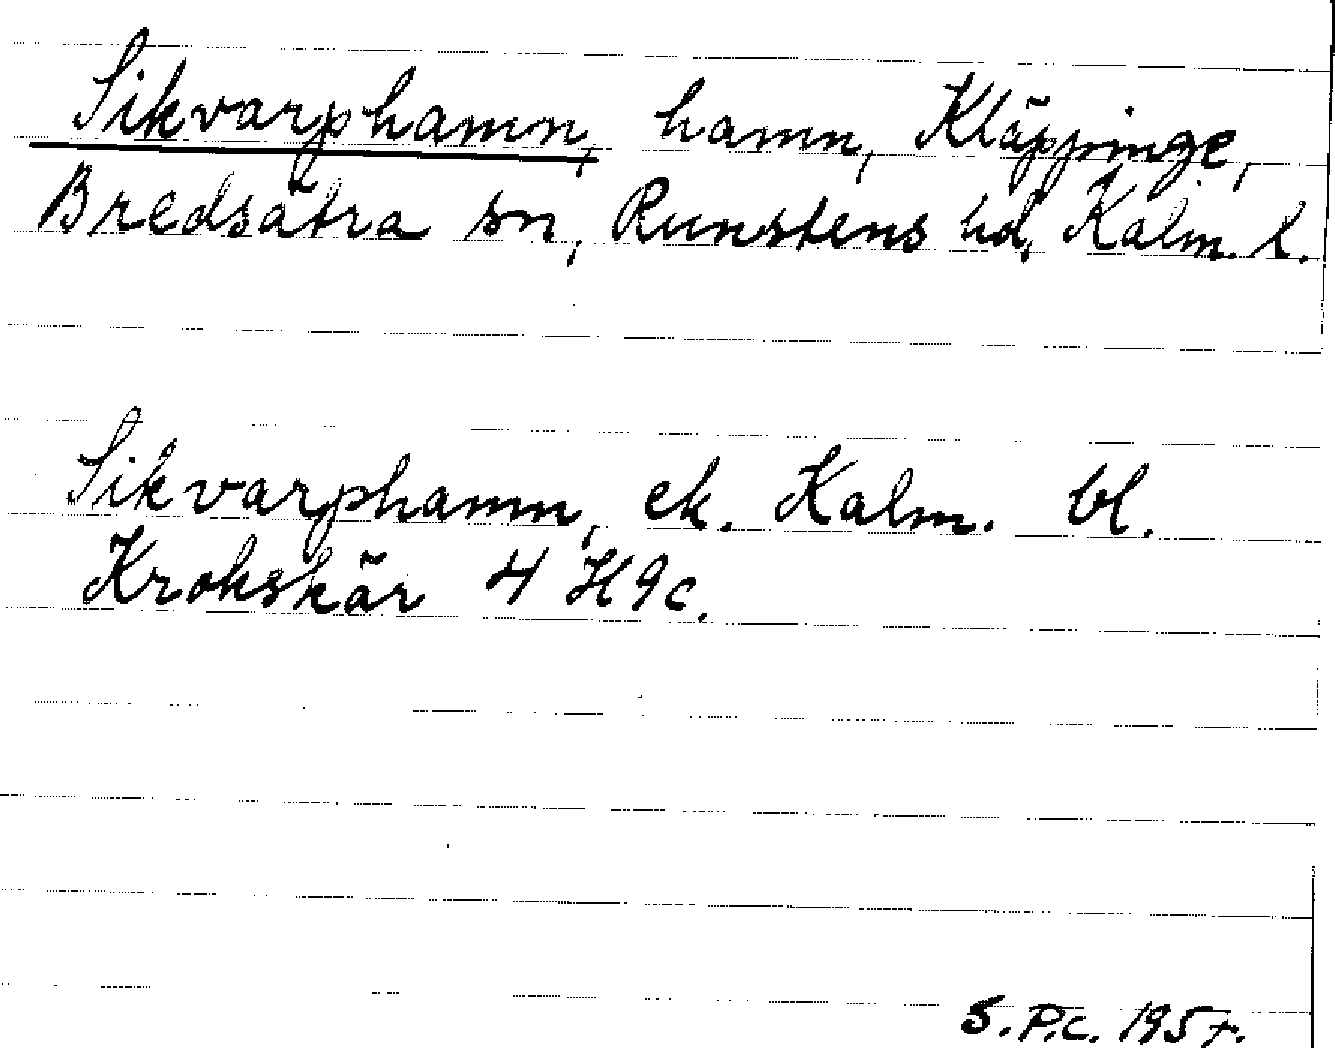 Sikvarphamn, hamn, Kläppinge,
Bredsätra sn, Runstens hd, Kalm. l.
Sikvarphamn, ek. Kalm. bl.
Krokskär 4 H9c.
S.P.C. 1957.